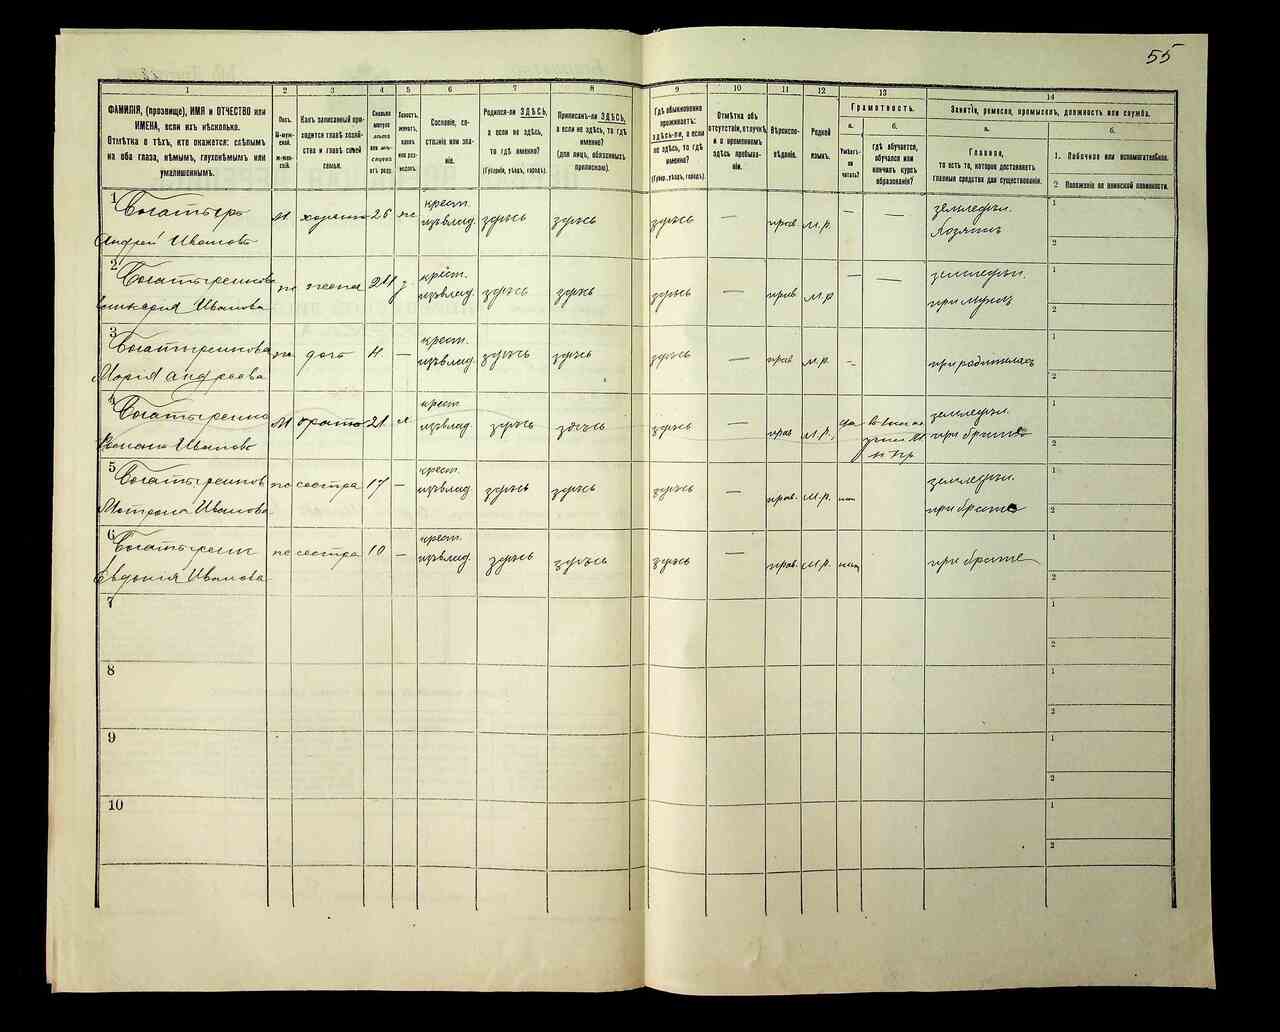 55
1
2
3
4
5
6
7
8
9
10
11
12
13
14
ФАМИЛІЯ, (прозвище), ИМЯ и ОТЧЕСТВО или
ИМЕНА, если ихъ нѣсколько.
Отмѣтка о тѣхъ, кто окажется: слѣпымъ
на оба глаза, нѣмымъ, глухонѣмымъ или
умалишеннымъ.
Полъ.
М-муж-
ской.
Ж-жен-
скій.
Какъ записанный при-
ходится главѣ хозяй-
ства и главѣ своей
семьи.
Сколько
минуло
лѣтъ
или мѣ-
сяцевъ
отъ роду.
Холостъ,
женатъ,
вдовъ
или раз-
веденъ.
Сословіе, со-
стояніе или зва-
ніе.
Родился-ли ЗДѢСЬ,
а если не здѣсь,
то гдѣ именно?
(Губернія, уѣздъ, городъ).
Приписанъ-ли ЗДѢСЬ,
а если не здѣсь, то гдѣ
именно?
(для лицъ, обязанныхъ
припискою).
Гдѣ обыкновенно
проживаетъ:
здѣсь-ли, а если
не здѣсь, то гдѣ
именно?
(Губер., уѣздъ, городъ).
Отмѣтка объ
отсутствіи, отлучкѣ
и о временномъ
здѣсь пребыва-
ніи.
Вѣроиспо-
вѣданіе.
Родной
языкъ.
Грамотность.
а.
б.
Умѣетъ-
ли
читать?
гдѣ обучается,
обучался или
кончилъ курсъ
образованія?
Занятія, ремесло, промыселъ, должность или служба.
а.
б.
Главное,
то есть то, которое доставляетъ
главныя средства для существованія.
1. Побочное или вспомогательное.
2 Положеніе по воинской повинности.
1
Богатырь
Андрей Ивановъ
м хозяинъ 26 же
крест.
изъ влад.
здѣсь здѣсь здѣсь — прав м.р. — —
земледѣл.
Хозяинъ
1
2
2
Богатыренкова
Ивановa
же жена 21 з
крест.
изъ влад.
здѣсь здѣсь здѣсь — прав м.р — —
земледѣл.
при мужѣ
1
2
3
Богатыренкова
Марія Андреева
же дочь 4 —
крест.
изъ влад.
здѣсь здѣсь здѣсь — прав м.р. —
при родителяхъ
1
2
4
Богатыренко
Ивановъ
м братъ 21 х
крест
изъ влад.
здѣсь здѣсь здѣсь — прав м.р. да
земледѣл.
при братѣ
1
2
5
Богатыренков
Матрена Иванова
же сестра 17 —
крест.
изъ влад
здѣсь здѣсь здѣсь — прав. м.р. нѣт
земледѣл.
при братѣ
1
2
6
Богатырен
Евдокія Иванова
же сестра 10 —
крест.
изъ влад.
здѣсь здѣсь здѣсь — прав. м.р. нѣт
при братѣ
1
2
7
1
2
8
1
2
9
1
2
10
1
2